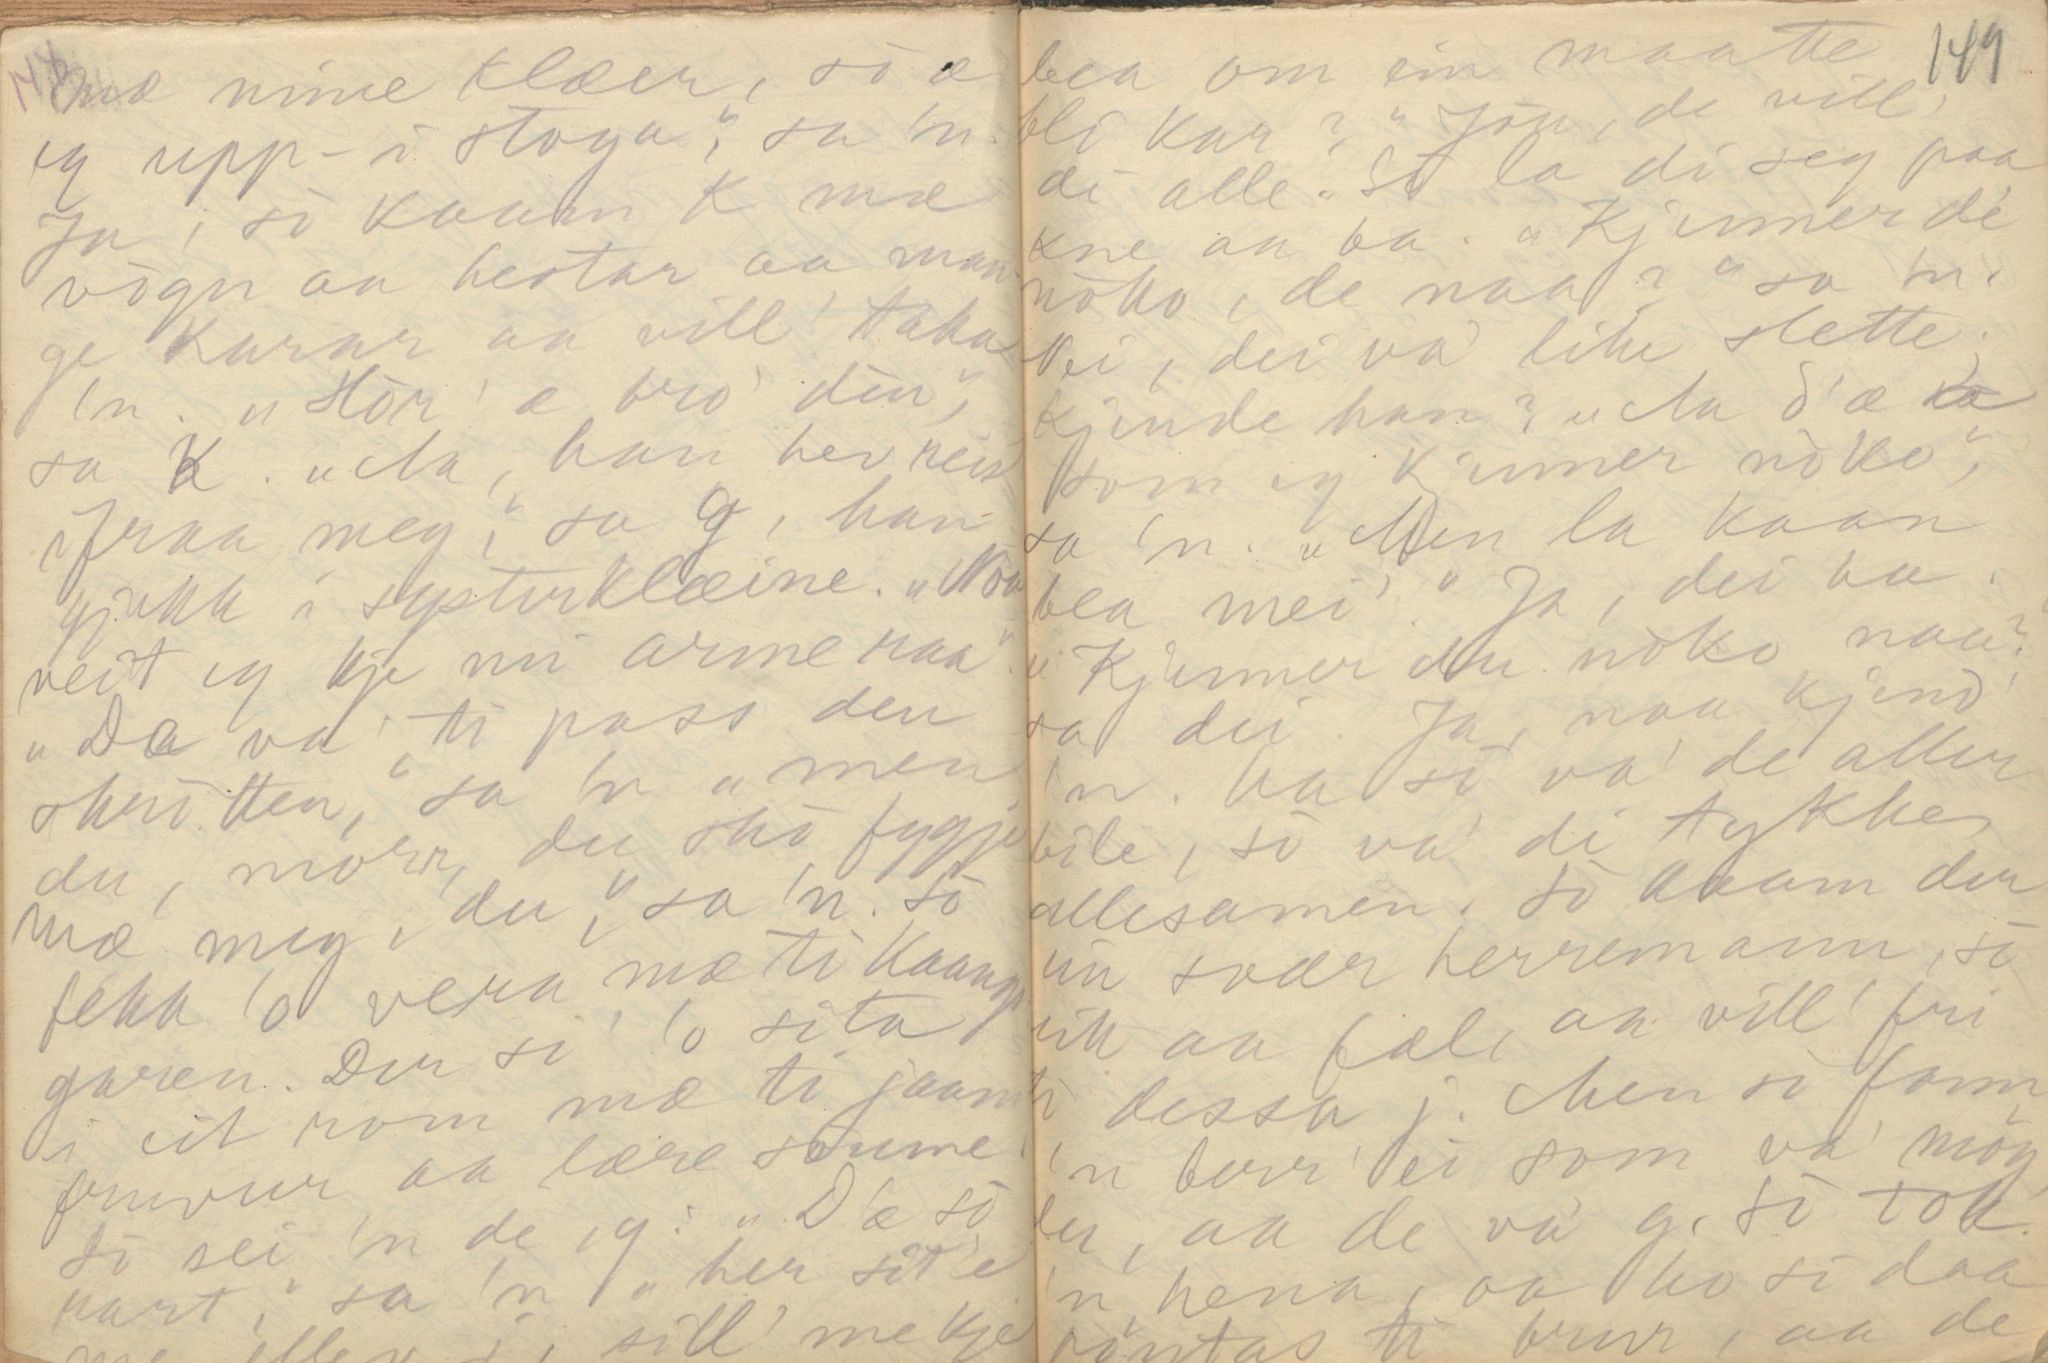 148
mæ mine klæer, sò æ
eg upp-i stoga", sa 'n.
Ja, sò kaam K mæ
vògn aa hestar aa man
ge karar aa vill' taka
'n. „Hòr' æ bro' din",
sa K. „Aa, han hev reis
ifraa meg", sa g, han
gjekk i systerklæine. „Nòu
veit eg kje mi arme raa".
„Dæ va' ti pass den
skrotten," sa 'n „men
du, morr, du skò fygje
mæ meg, du," sa 'n. Sò
fekk 'o vera mæ ti kaangs
garen. Der si' 'o sita
i eit rom mæ ti jaam
fruvur aa lære soume
Sò sei 'n de eg: „D'æ sò
rart," sa 'n „her sit'e
me alle j, sill' me kje
149
bea om ein maatte
bli kar?" „Jòu, de vill'
di alle." Sò la di seg paa
kne aa ba. „Kjenner de
nòko, de naa?" sa 'n.
Nei, dei va' like slette.
Kjende han? „Aa d'æ
som eg kjenner nòko",
sa 'n. „Men la kaan
bea mei'." Ja, dei ba.
„Kjenner du nòko naa?"
sa dei. Ja, naa kjend'
'n. Ha sò va' de aller
bile, sò va' di tykke
allesamen. Sò kaam der
ein svær herremann, sò
rik aa fæl, aa vill' fri
ti dessa j. Men sò fann
'n berr' ei som va' mòg
lei, aa de va' g. Sò tok
'n hena, aa ho si daa
pòntas ti brur, aa de